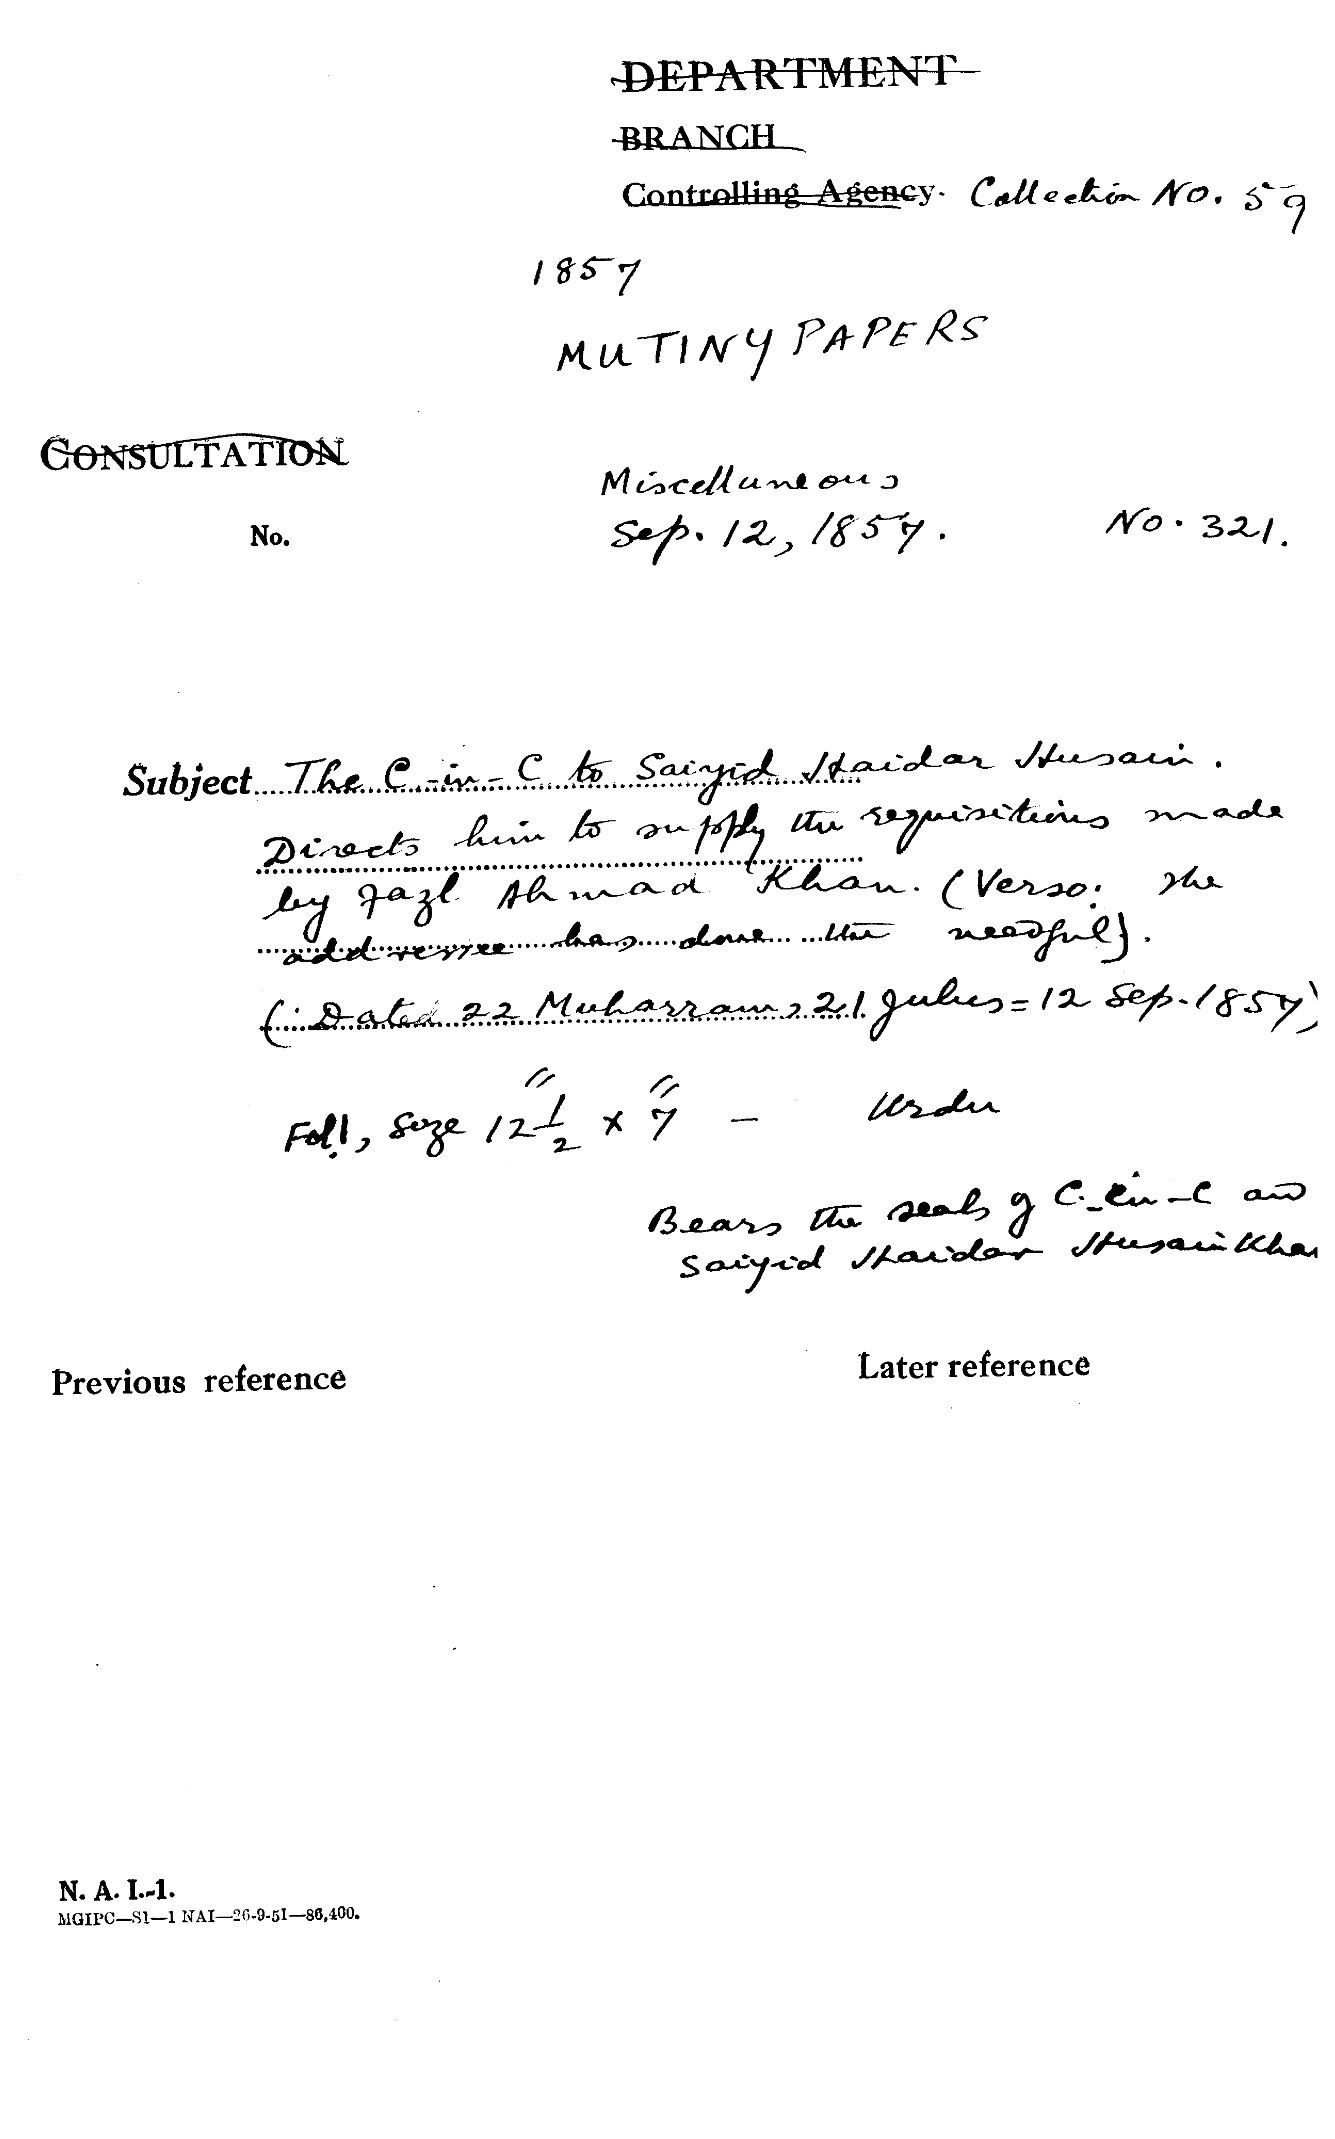 DEPARTMENT
BRANCH
Controlling Agency. Collection No. 59
1857
MUTINY PAPERS
CONSULTATION
Miscellaneous
No.
Sep. 12, 1857. No. 321.
Subject The C-in-C to Saiyid Haidar Husain.
Directs him to supply the requisitions made
by Fazl Ahmad Khan. (Verso: The
addressee has done the needful).
(Dated 22 Muharram, 21 Julus = 12 Sep. 1857)
Fol 1, Size 12 1/2" x 7" - Urdu
Bears the seals of C-in-C and
Saiyid Haidar Husain Khan
Previous reference
Later reference
N. A. I.-1.
MGIPC—S1—1 NAI—26-9-51—86,400.